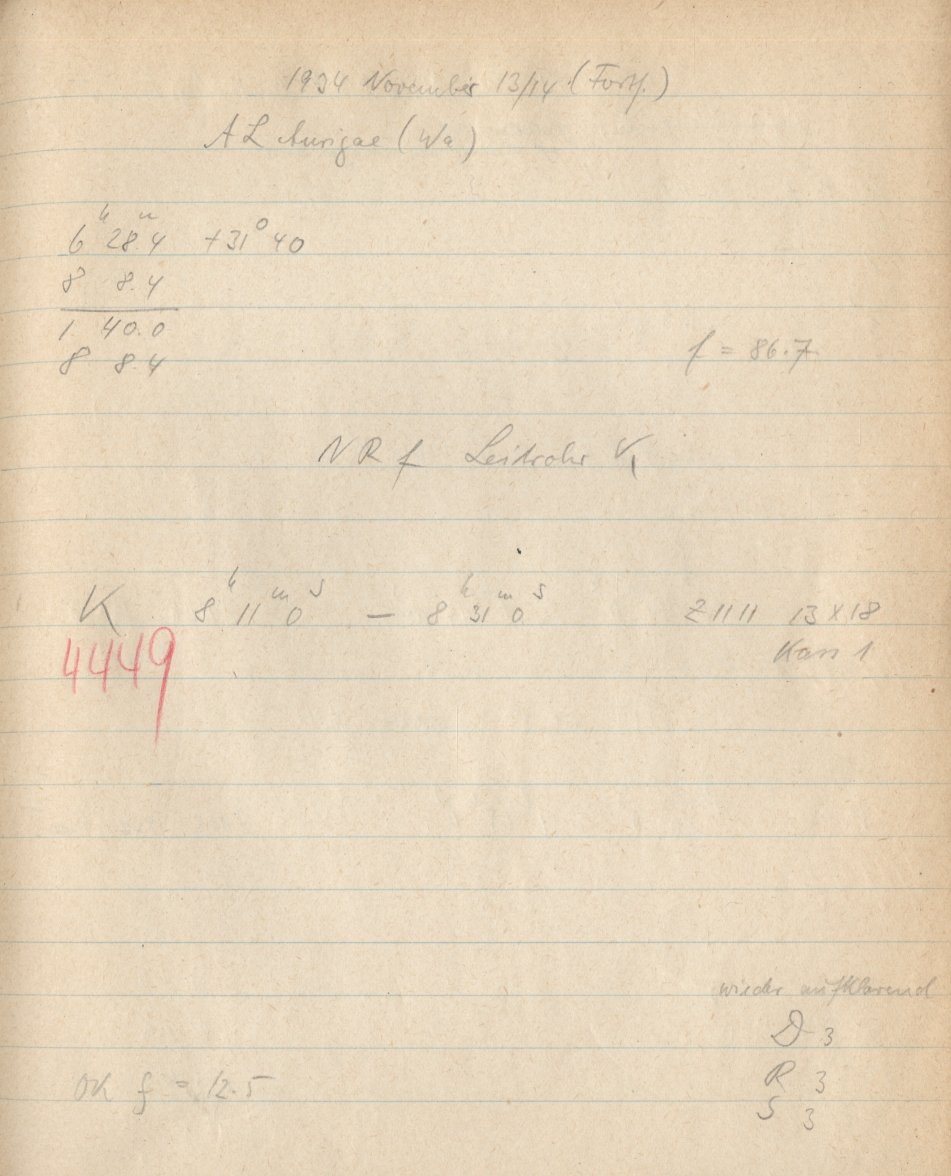 1934 November 13/14 (Fortf.)
AL Aurigae (Wa)
6ʰ 28.4ᵐ +31° 40
8 8.4
1. 40.0
8 8.4
f = 86.7
NR f Leitrohr V₁
K 8ʰ 11ᵐ 0ˢ — 8ʰ 31ᵐ 0ˢ Z 1111 13 x 18
Kass 1
4449
wieder aufklarend
D 3
R 3
OK f = 12.5
S 3